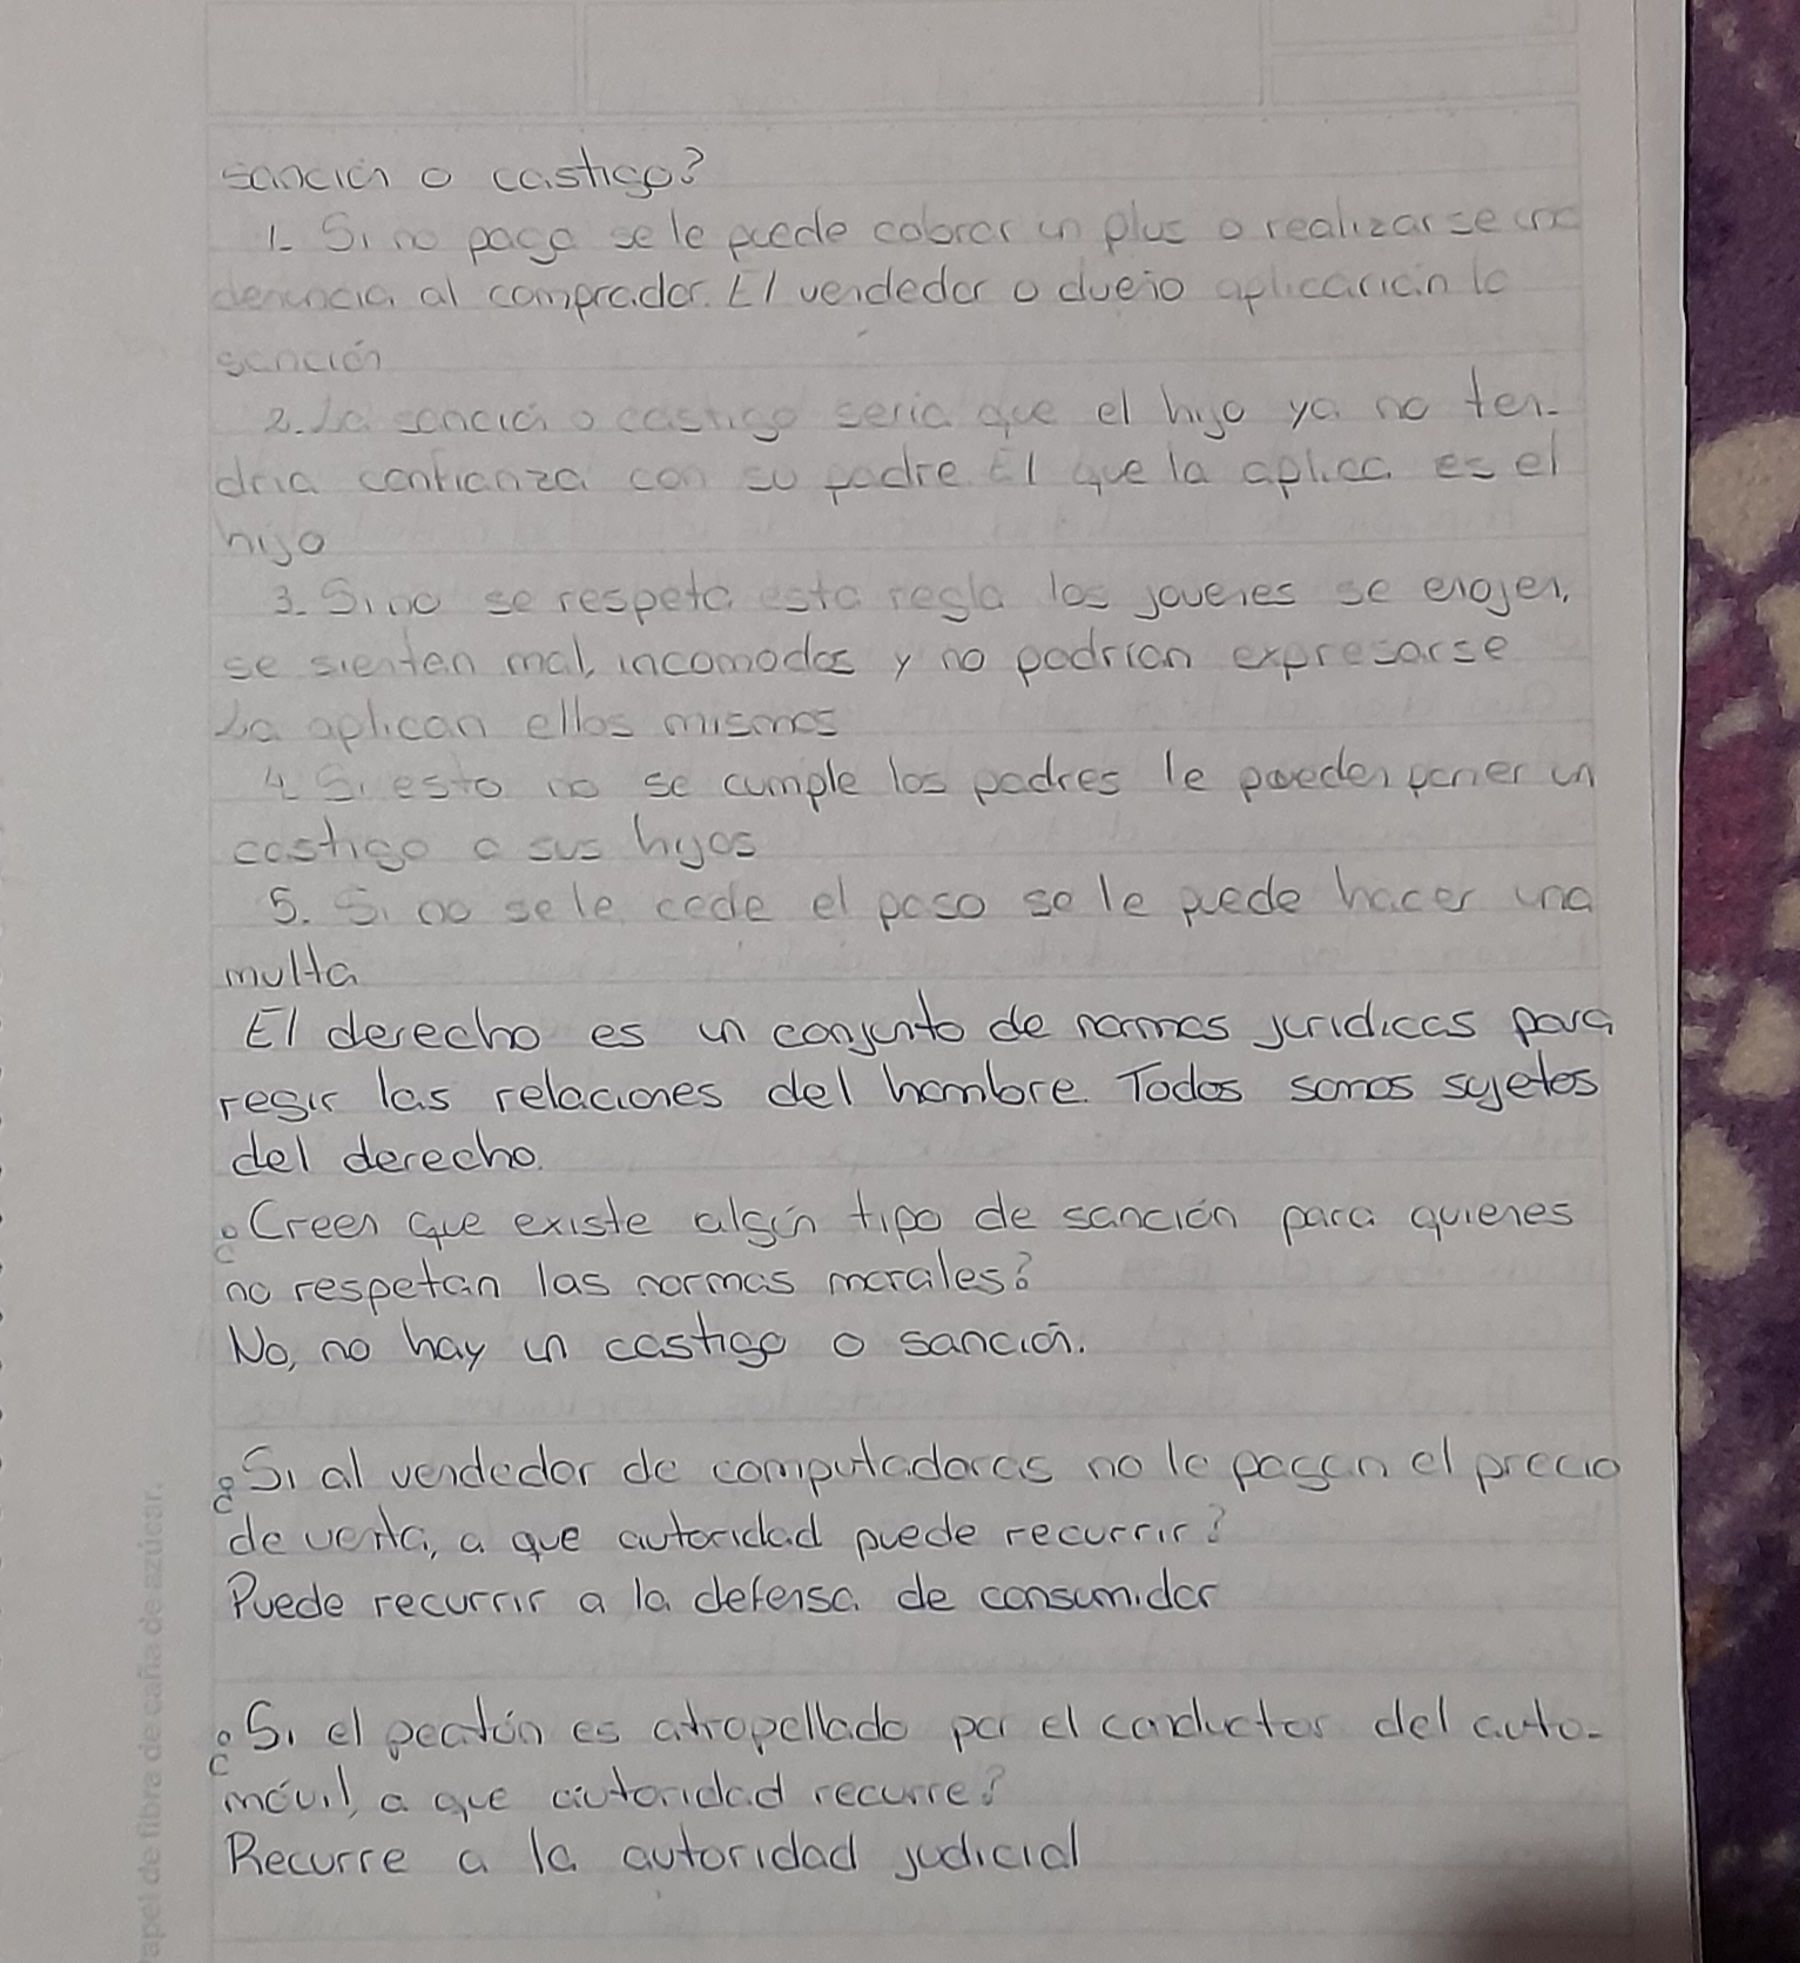 sanción o castigo?
1. Si no paga se le puede cobrar un plus o realizarse una
denuncia al comprador. El vendedor o dueño aplicarían la
sanción
2. La sanción o castigo seria que el hijo ya no ten-
dria confianza con su padre. El que la aplica es el
hijo
3. Si no se respeta esta regla los jovenes se enojen,
se sienten mal, incomodos y no podrian expresarse
La aplican ellos mismos
4. Si esto no se cumple los padres le pueden poner un
castigo a sus hijos
5. Si no se le cede el paso se le puede hacer una
multa
El derecho es un conjunto de normas juridicas para
regir las relaciones del hombre. Todos somos sujetos
del derecho.
¿Creen que existe algún tipo de sanción para quienes
no respetan las normas morales?
No, no hay un castigo o sanción.
¿Si al vendedor de computadoras no le pagan el precio
de venta, a que autoridad puede recurrir?
Puede recurrir a la defensa de consumidor
¿Si el peatón es atropellado por el conductor del auto-
móvil, a que autoridad recurre?
Recurre a la autoridad judicial
apel de fibra de caña de azúcar.